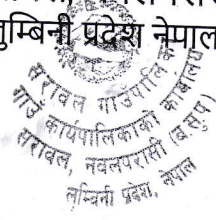 लुम्बिनी प्रदेश नेपाल
सरावल गाउँपालिका
गाउँ कार्यपालिकाको कार्यालय
सरावल, नवलपरासी (ब.सु.प)
लुम्बिनी प्रदेश, नेपाल